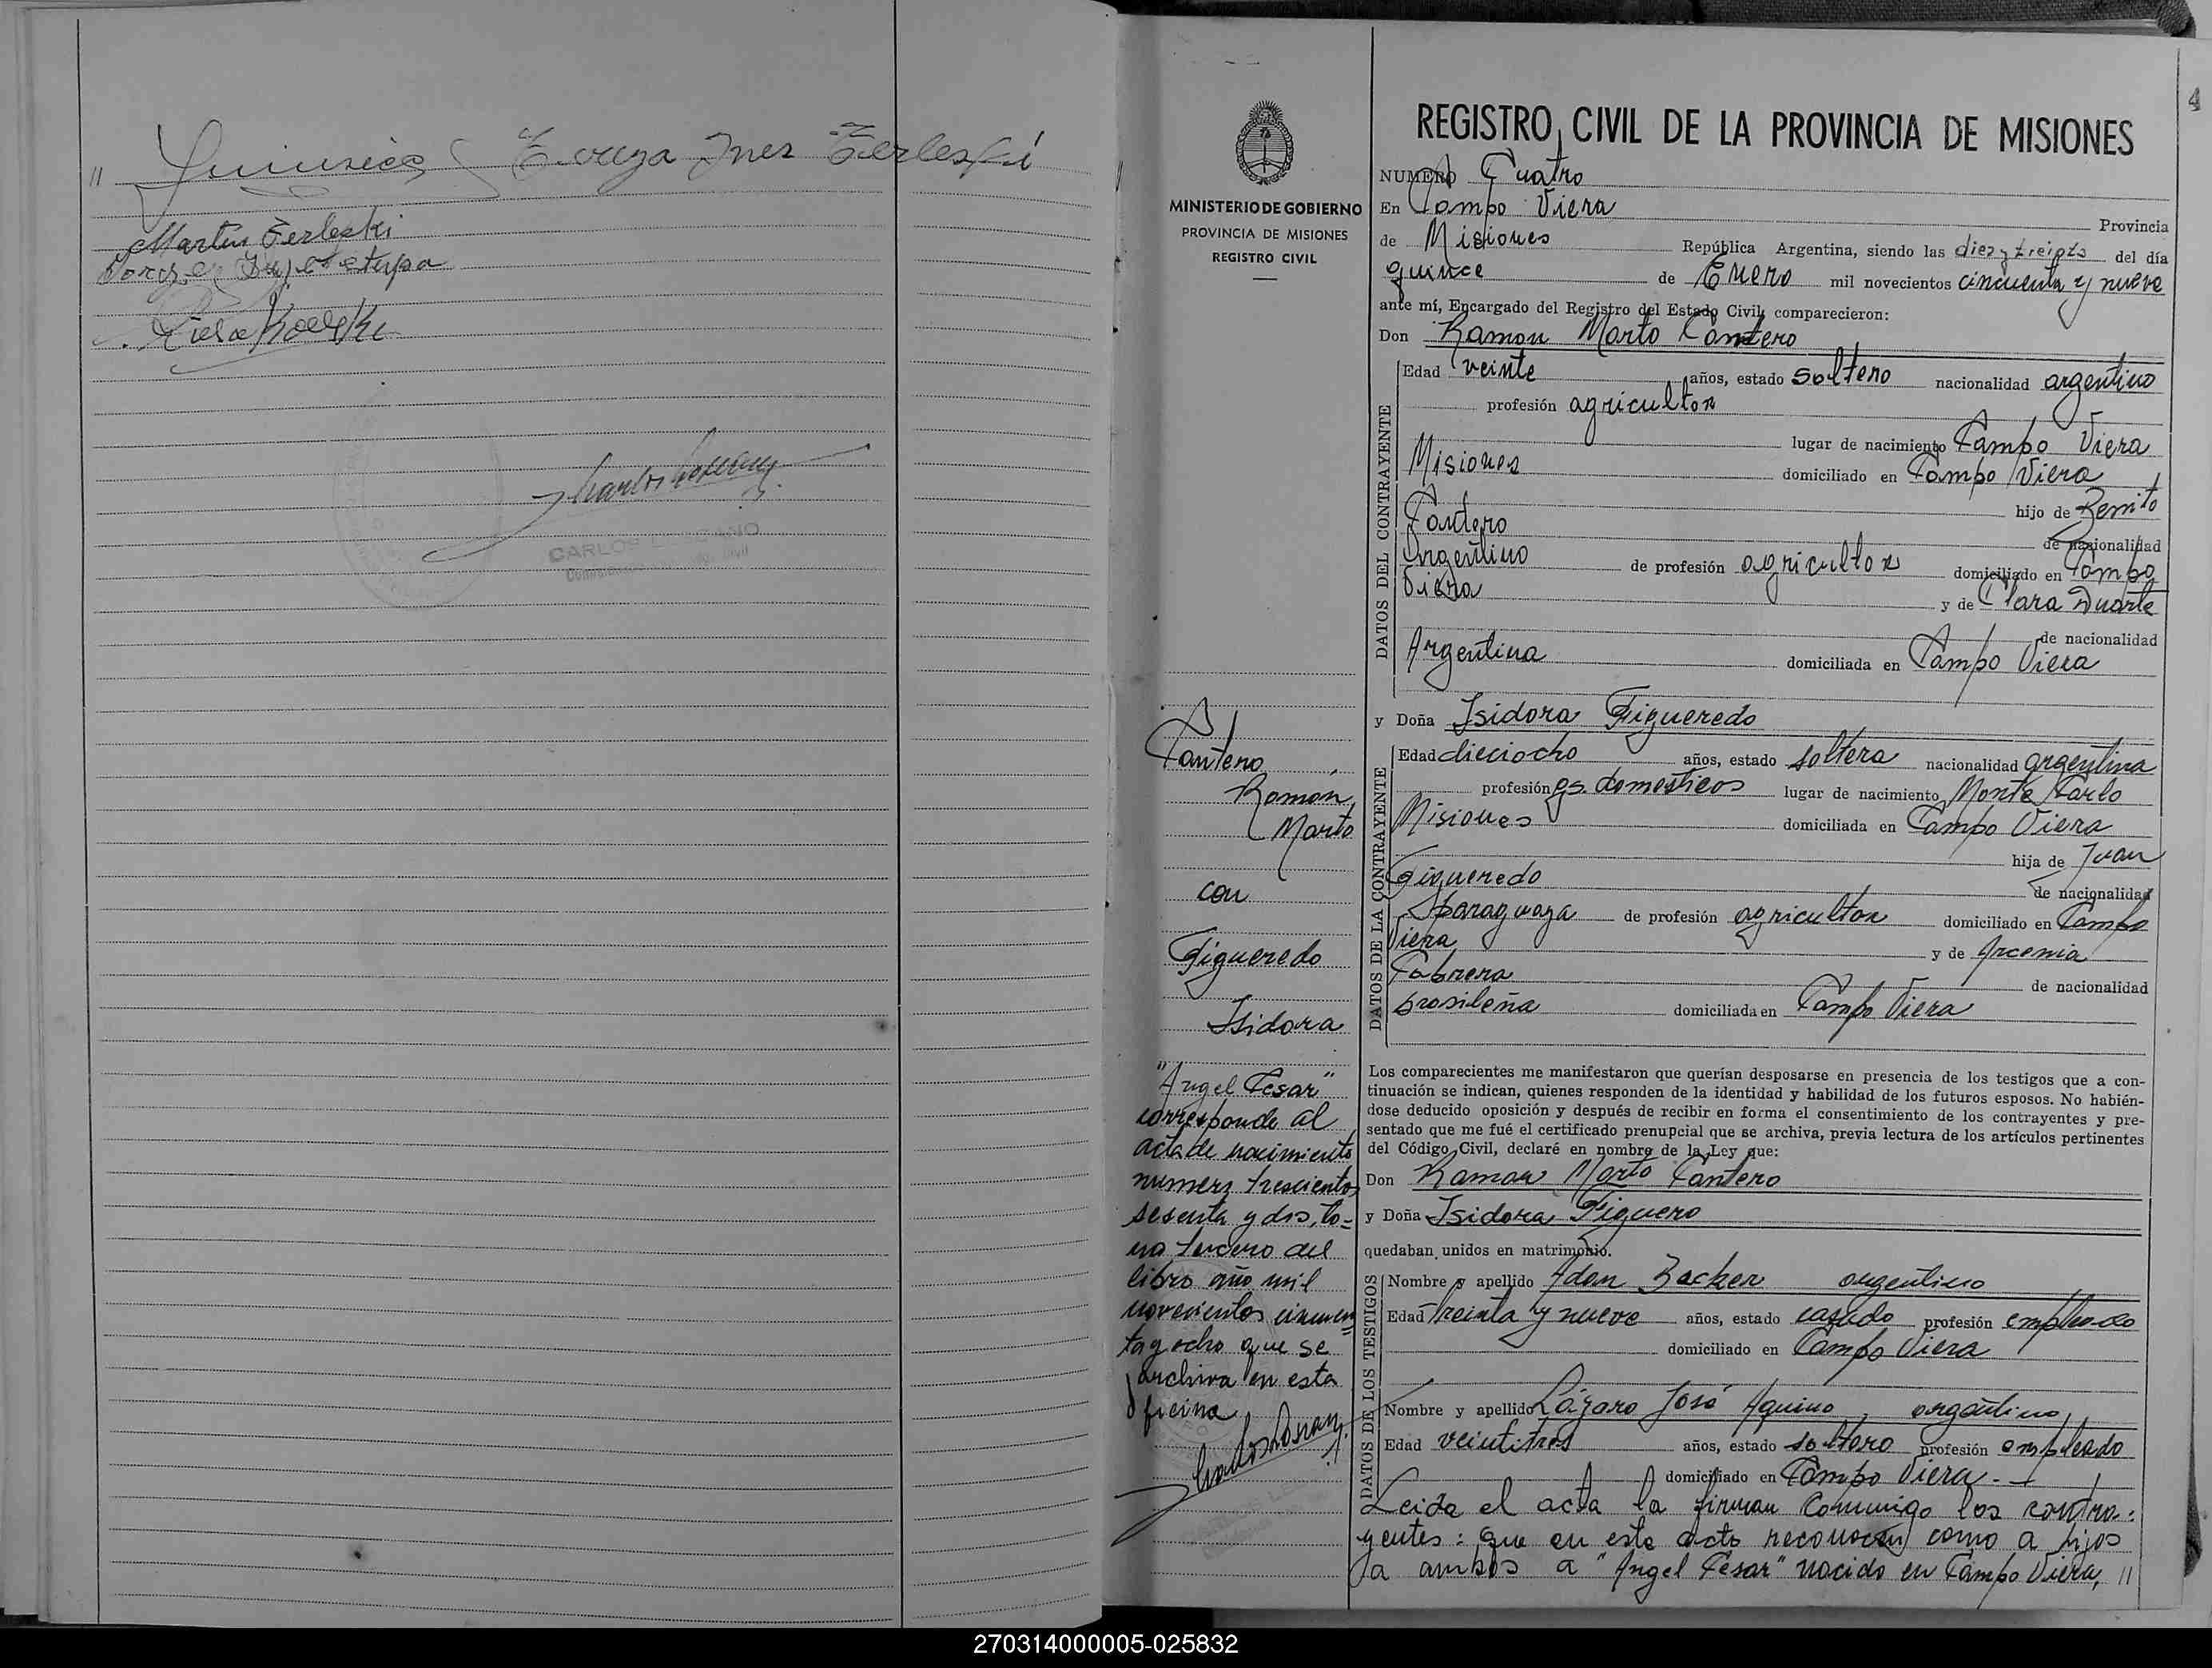 " Eruza Ines Zerleski
Martin Zerleski
CARLOS LEZCANO
4
MINISTERIO DE GOBIERNO
PROVINCIA DE MISIONES
REGISTRO CIVIL
Cantero
Ramón
Marto
con
Figueredo
Isidora
"Angel Cesar"
corresponde al
acta de nacimiento
numero trescientos
sesenta y dos, to=
mo tercero del
libro año mil
novecientos cincuen=
ta y ocho que se
archiva en esta
oficina
REGISTRO CIVIL DE LA PROVINCIA DE MISIONES
NUMERO Cuatro
En Campo Viera Provincia
de Misiones República Argentina, siendo las diez y treinta del día
quince de Enero mil novecientos cincuenta y nueve
ante mí, Encargado del Registro del Estado Civil, comparecieron:
Don Ramon Marto Cantero
DATOS DEL CONTRAYENTE
Edad veinte años, estado soltero nacionalidad argentino
profesión agricultor
lugar de nacimiento Campo Viera
Misiones domiciliado en Campo Viera
hijo de Benito
Cantero de nacionalidad
Argentino de profesión agricultor domiciliado en Campo
Viera y de Clara Duarte
de nacionalidad
Argentina domiciliada en Campo Viera
y Doña Isidora Figueredo
DATOS DE LA CONTRAYENTE
Edad dieciocho años, estado soltera nacionalidad argentina
profesión qs. domesticos lugar de nacimiento Monte Carlo
Misiones domiciliada en Campo Viera
hija de Juan
Figueredo de nacionalidad
paraguaya de profesión agricultor domiciliado en Campo
Viera y de Arcenia
Cabrera de nacionalidad
brasileña domiciliada en Campo Viera
Los comparecientes me manifestaron que querían desposarse en presencia de los testigos que a con-
tinuación se indican, quienes responden de la identidad y habilidad de los futuros esposos. No habién-
dose deducido oposición y después de recibir en forma el consentimiento de los contrayentes y pre-
sentado que me fué el certificado prenupcial que se archiva, previa lectura de los artículos pertinentes
del Código Civil, declaré en nombre de la Ley que:
Don Ramon Marto Cantero
y Doña Isidora Figuero
quedaban unidos en matrimonio.
DATOS DE LOS TESTIGOS
Nombre y apellido Adan Backer argentino
Edad treinta y nueve años, estado casado profesión empleado
domiciliado en Campo Viera
Nombre y apellido Lázaro José Aquino argentino
Edad veintitres años, estado soltero profesión empleado
domiciliado en Campo Viera.-
Leida el acta la firman conmigo los contra=
yentes: que en este acto reconocen como a hijos
a ambos a "Angel Cesar" nacido en Campo Viera, "
270314000005-025832